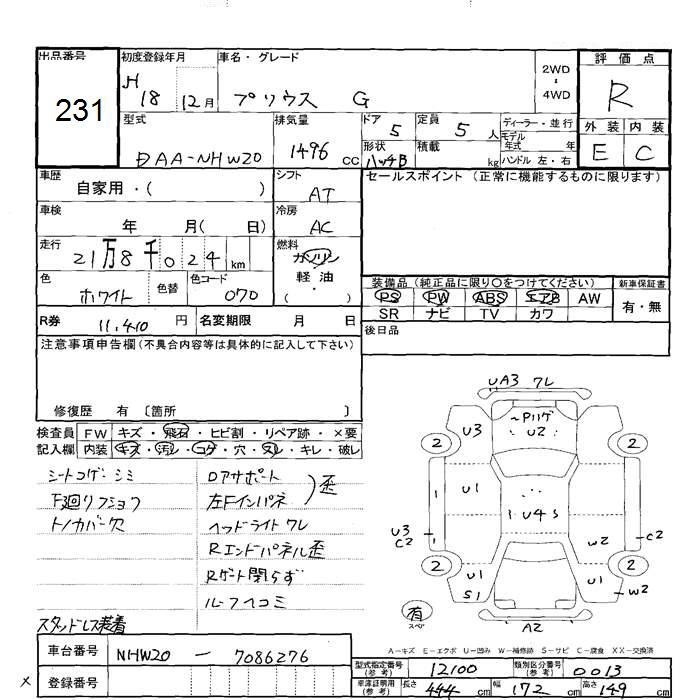 出品番号 初度登録年月 車名・グレード 2WD・4WD 評価点
231 H 18 12月 プリウス G R
型式 排気量 ドア 定員 ディーラー・並行 外装 内装
DAA-NHW20 1496 cc 5 5 人 モデル年式 年 E C
形状 ハッチB 積載 kg ハンドル 左・右
車歴 自家用・( ) シフト AT セールスポイント (正常に機能するものに限ります)
車検 年 月( 日) 冷房 AC
走行 21万8千024 km 燃料 ガソリン
軽油
( )
色 ホワイト 色替 色コード 070
装備品 (純正品に限り○をつけてください) 新車保証書
PS PW ABS エアB AW 有・無
SR ナビ TV カワ
R券 11,410 円 名変期限 月 日
後日品
注意事項申告欄(不具合内容等は具体的に記入して下さい)
修復歴 有 〔箇所 〕
検査員 FW キズ・飛石・ヒビ割・リペア跡・×要
記入欄 内装 キズ・汚レ・コゲ・穴・スレ・キレ・破レ
シートコゲ・シミ Dアサポート
下廻リフショク 左Fインパネ 歪
トノカバー欠 ヘッドライトワレ
Rエンドパネル歪
Rゲート閉らず
ルーフヘコミ
スタッドレス装着
UA3 ワレ
U3 〜P11ゲ U2
2 2
1 U1 1 U4 S
U3 C2 1 W2 C2
2 2
U1 S1 U1 W2
有 スペ A2
A-キズ E-エクボ U-凹み W-補修跡 S-サビ C-腐食 XX-交換済
車台番号 NHW20 - 7086276
型式指定番号(参考) 12100 類別区分番号(参考) 0013
× 登録番号
車庫証明用(参考) 長さ 444 cm 幅 172 cm 高さ 149 cm